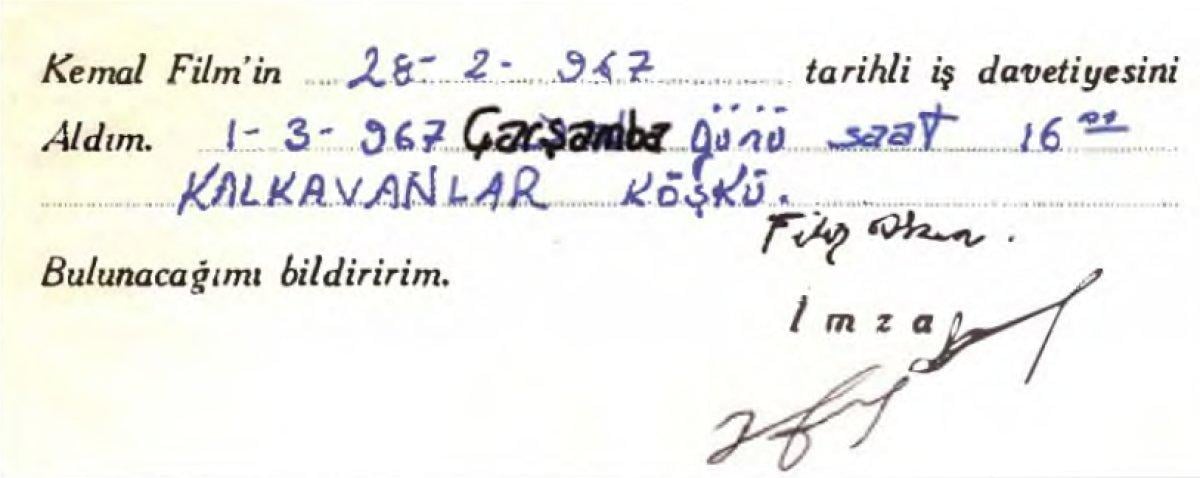 Kemal Film'in 28- 2- 967 tarihli iş davetiyesini
Aldım. 1- 3- 967 Çarşamba günü saat 16⁰⁰
KALKAVANLAR KÖŞKÜ.
Filiz Akın.
Bulunacağımı bildiririm.
İmza